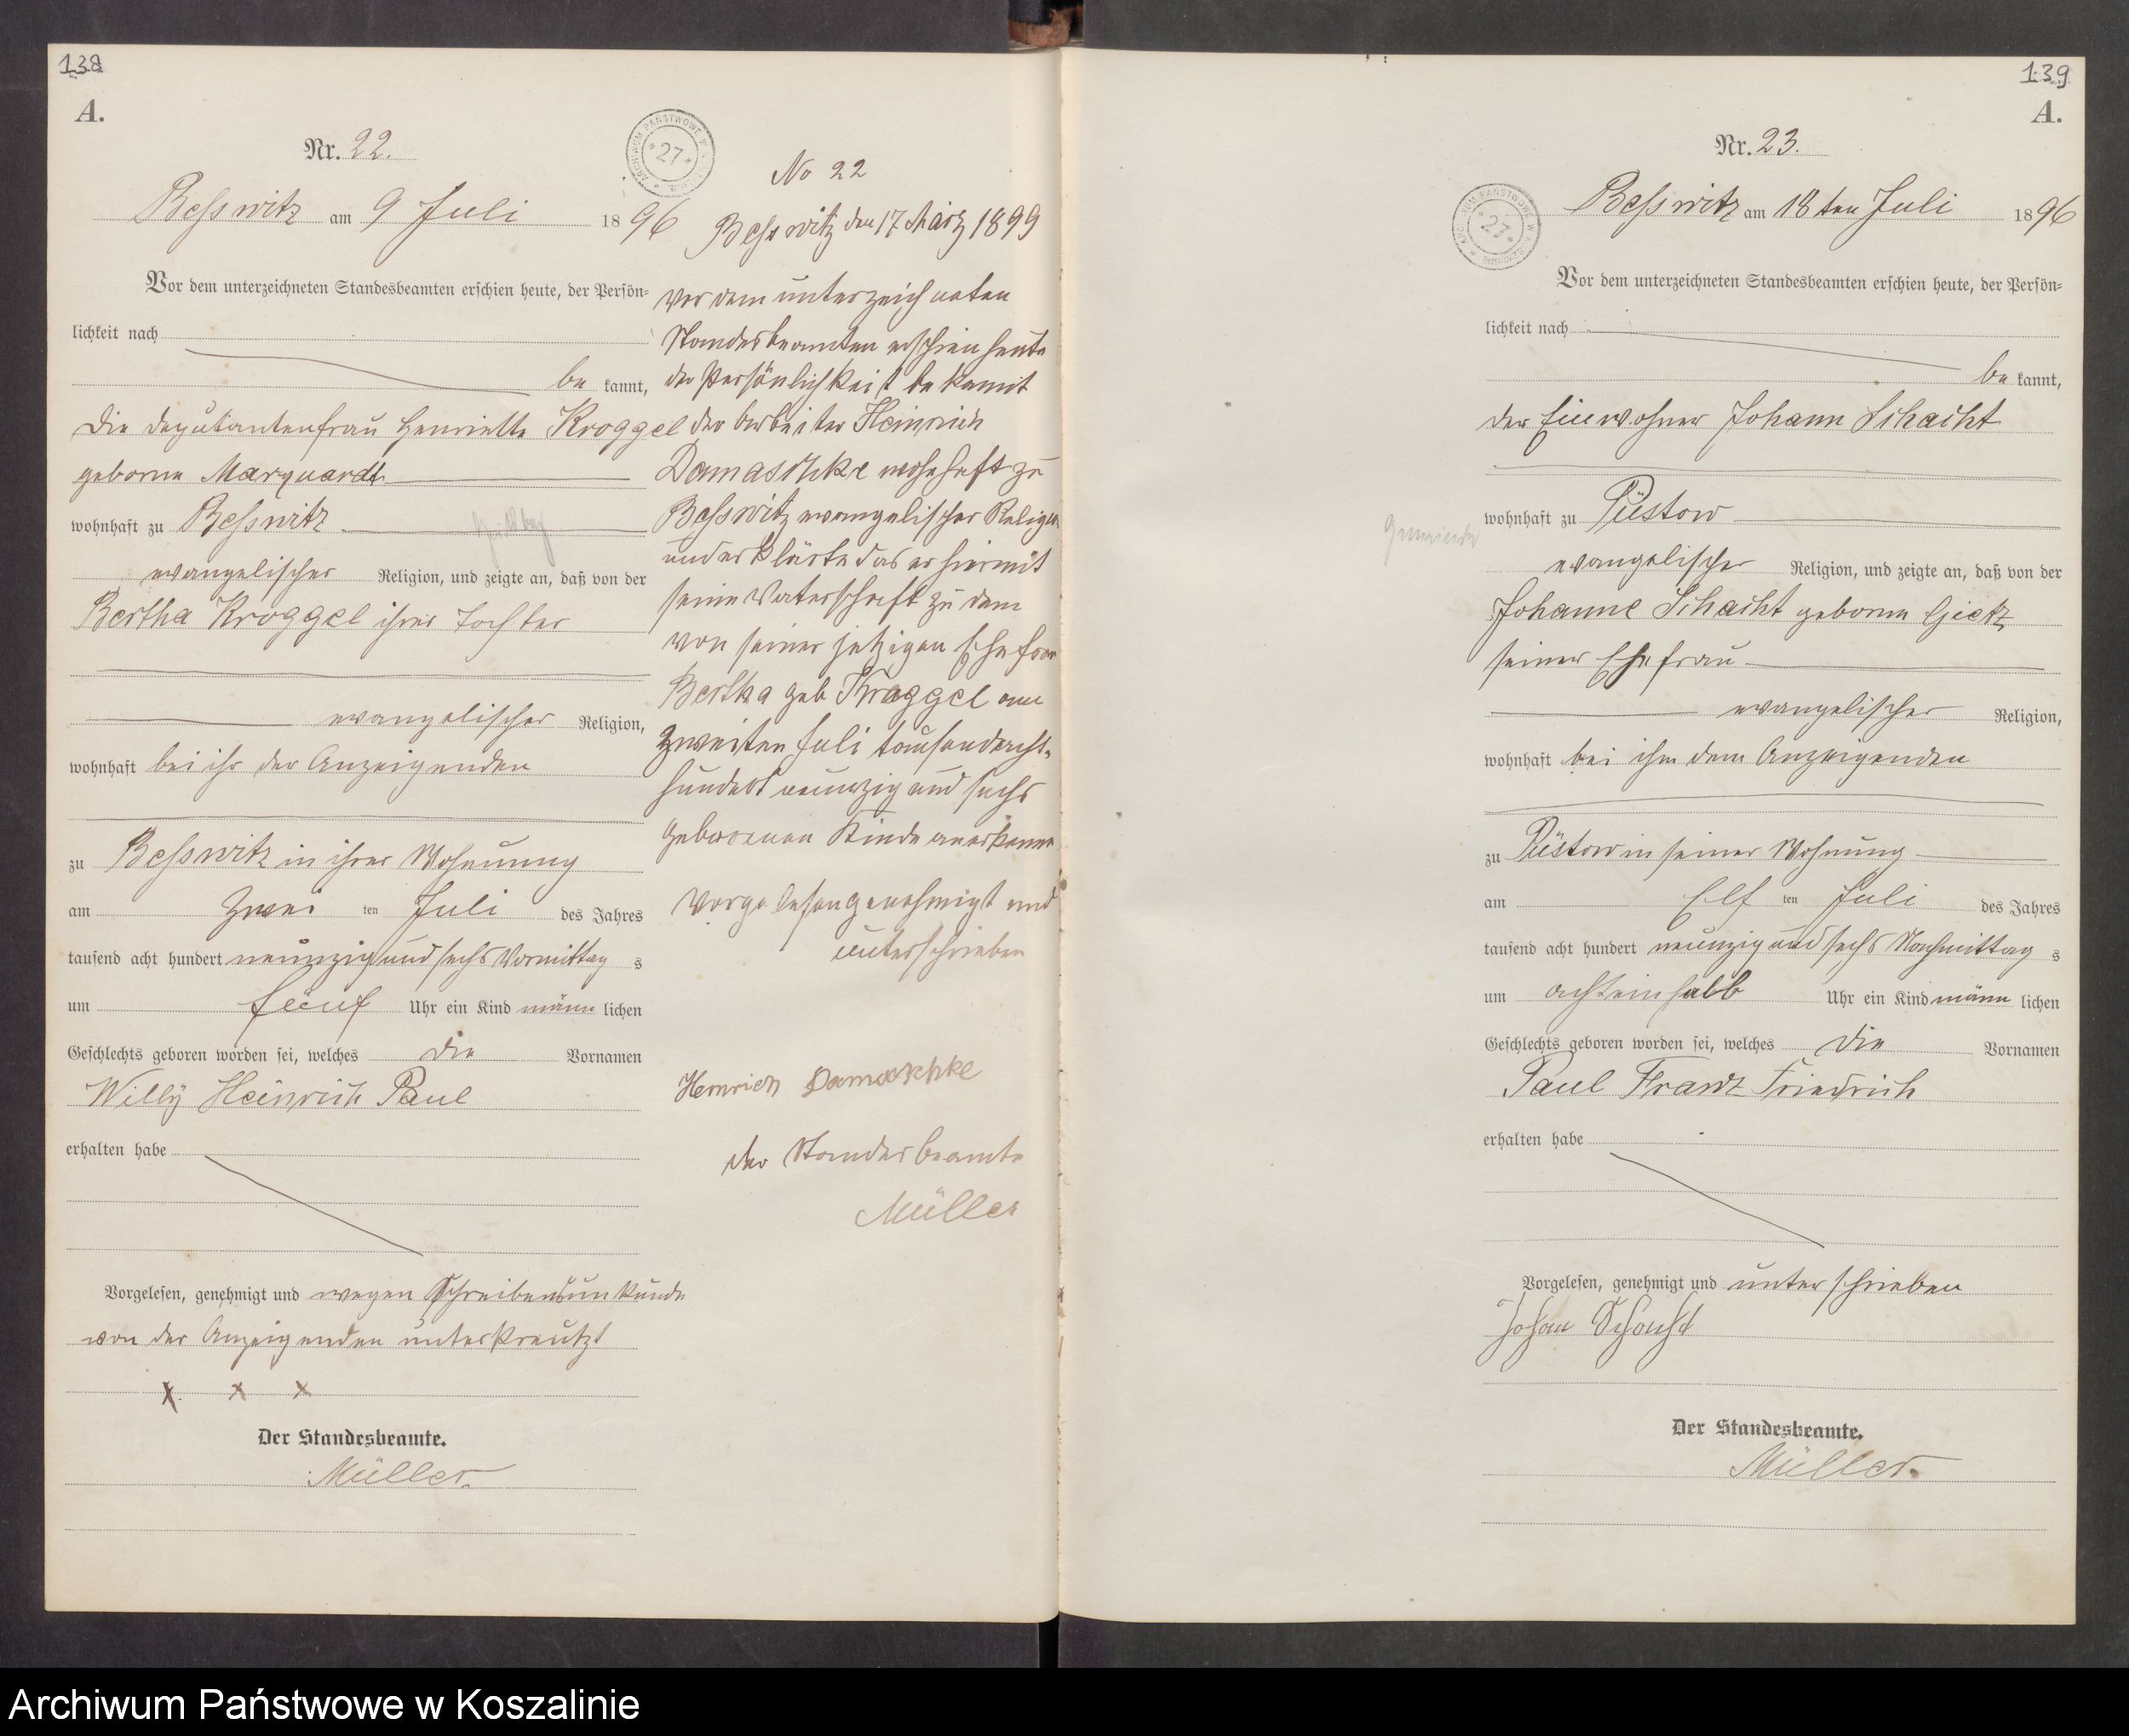 138
A.
Nr. 22.
Beßwitz am 9 Juli 1896
Vor dem unterzeichneten Standesbeamten erschien heute, der Persön=
lichkeit nach
be kannt,
die Deputantenfrau Henriette Kroggel
geborne Marquardt
wohnhaft zu Beßwitz
evangelischer Religion, und zeigte an, daß von der
Bertha Kroggel ihrer Tochter
evangelischer Religion,
wohnhaft bei ihr der Anzeigenden
zu Beßwitz in ihrer Wohnung
am zwei ten Juli des Jahres
tausend acht hundert neunzig und sechs Vormittag s
um fünf Uhr ein Kind männ lichen
Geschlechts geboren worden sei, welches die Vornamen
Willy Heinrich Paul
erhalten habe
Vorgelesen, genehmigt und wegen Schreibensunkunde
von der Anzeigenden unterkreutzt
x x x
Der Standesbeamte.
Müller.
ARCHIWUM PAŃSTWOWE W
27
No 22
Beßwitz den 17 März 1899
Vor dem unterzeichneten
Standesbeamten erschien heute
der Persönlichkeit bekannt
der Arbeiter Heinrich
Damaschke wohnhaft zu
Beßwitz evangelischer Religion
und erklärte das er hiermit
seine Vaterschaft zu dem
von seiner jetzigen Ehefrau
Bertha geb Kroggel am
zweiten Juli tausendacht=
hundert neunzig und sechs
geborenen Kinde anerkenne
Vorgelesen genehmigt und
unterschrieben
Heinrich Damaschke
der Standesbeamte
Müller
139
A.
Nr. 23.
ARCHIWUM PAŃSTWOWE W
27
Beßwitz am 18ten Juli 1896
Vor dem unterzeichneten Standesbeamten erschien heute, der Persön=
lichkeit nach
be kannt,
der Einwohner Johann Schacht
wohnhaft zu Püstow
evangelischer Religion, und zeigte an, daß von der
Johanne Schacht geborne Gietz
seiner Ehefrau
evangelischer Religion,
wohnhaft bei ihm dem Anzeigenden
zu Püstow in seiner Wohnung
am Elf ten Juli des Jahres
tausend acht hundert neunzig und sechs Nachmittag s
um achteinhalb Uhr ein Kind männ lichen
Geschlechts geboren worden sei, welches die Vornamen
Paul Franz Friedrich
erhalten habe
Vorgelesen, genehmigt und unterschrieben
Johan Schacht
Der Standesbeamte.
Müller.
Archiwum Państwowe w Koszalinie